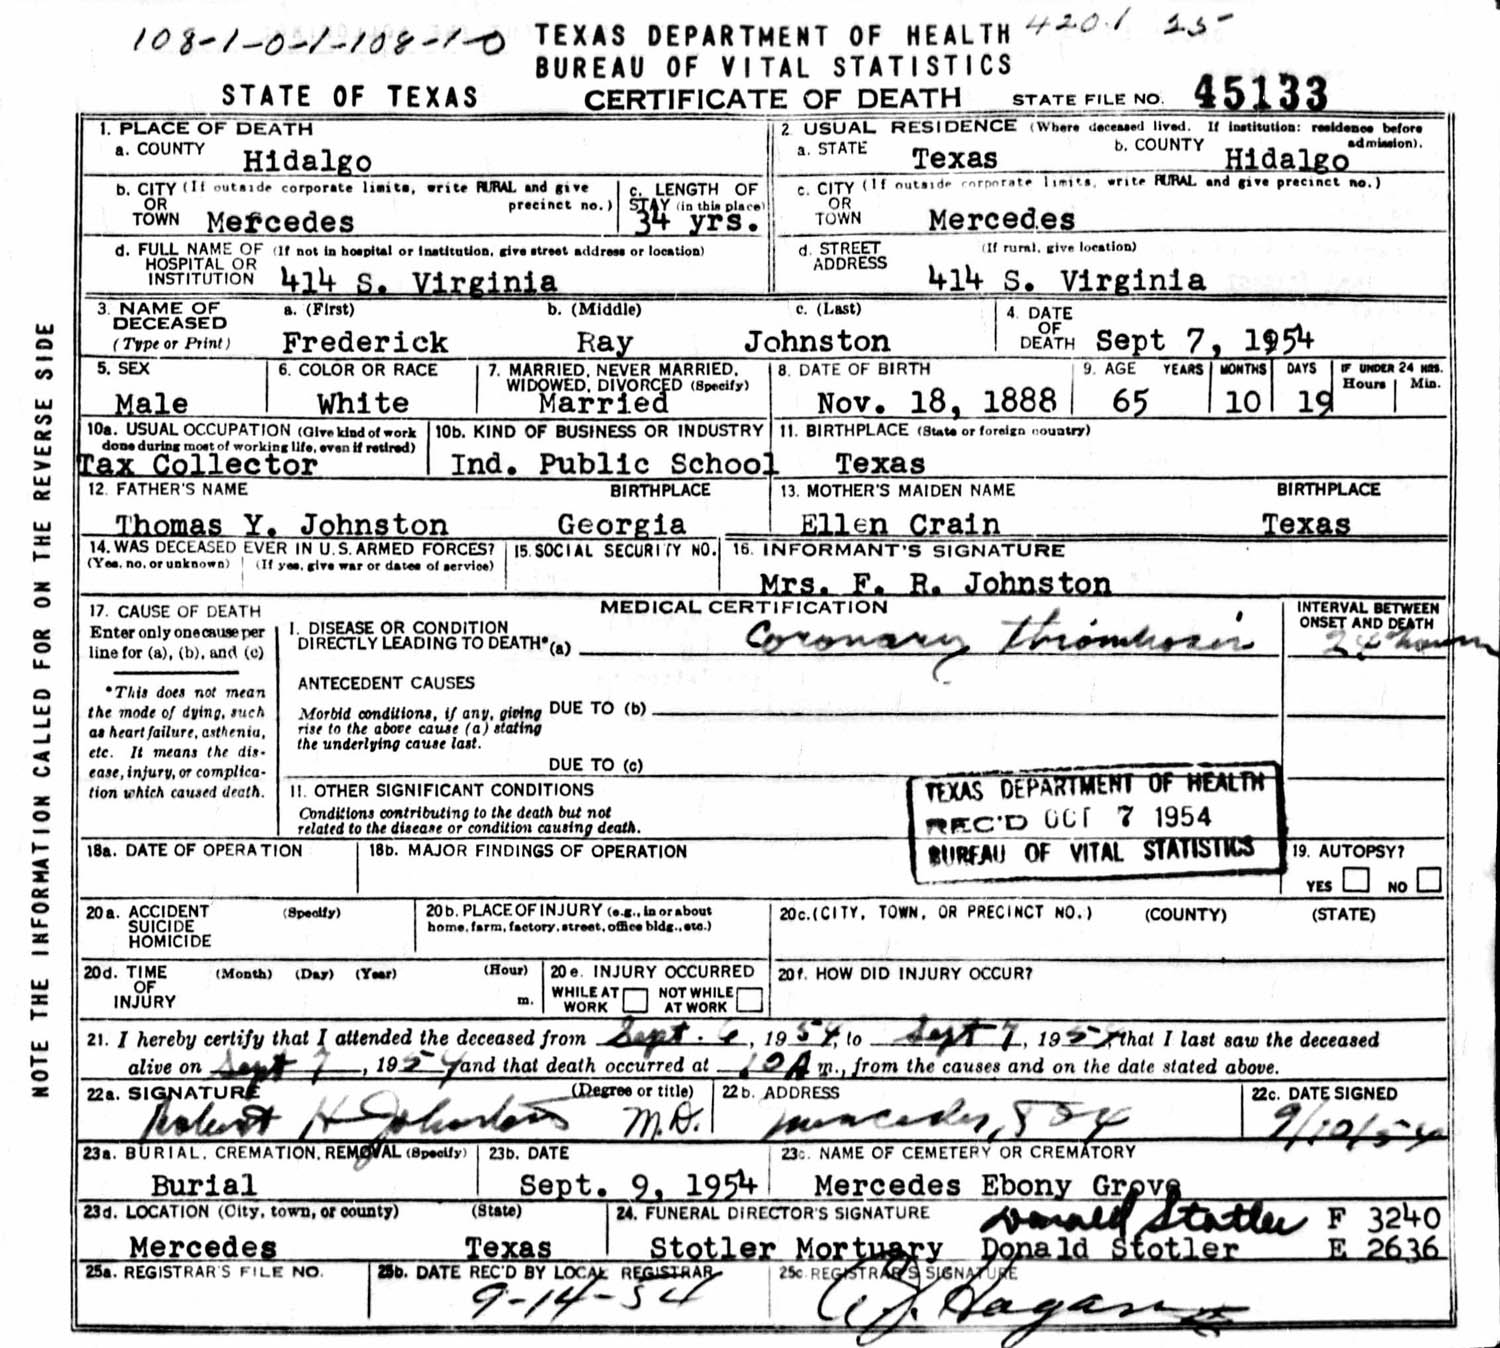 108-1-0-1-108-1-0
TEXAS DEPARTMENT OF HEALTH 420.1 25-
BUREAU OF VITAL STATISTICS
STATE OF TEXAS CERTIFICATE OF DEATH STATE FILE NO. 45133
NOTE THE INFORMATION CALLED FOR ON THE REVERSE SIDE
1. PLACE OF DEATH
a. COUNTY Hidalgo
2 USUAL RESIDENCE (Where deceased lived. If institution: residence before admission).
a. STATE Texas b. COUNTY Hidalgo
b. CITY (If outside corporate limits, write RURAL and give precinct no.)
OR
TOWN Mercedes
c. LENGTH OF
STAY (in this place)
34 yrs.
c. CITY (If outside corporate limits, write RURAL and give precinct no.)
OR
TOWN Mercedes
d. FULL NAME OF (If not in hospital or institution, give street address or location)
HOSPITAL OR
INSTITUTION 414 S. Virginia
d. STREET (If rural, give location)
ADDRESS 414 S. Virginia
3. NAME OF a. (First) b. (Middle) c. (Last)
DECEASED
(Type or Print) Frederick Ray Johnston
4. DATE
OF
DEATH Sept 7, 1954
5. SEX
Male
6. COLOR OR RACE
White
7. MARRIED, NEVER MARRIED,
WIDOWED, DIVORCED (Specify)
Married
8. DATE OF BIRTH
Nov. 18, 1888
9. AGE YEARS MONTHS DAYS IF UNDER 24 HRS.
Hours Min.
65 10 19
10a. USUAL OCCUPATION (Give kind of work
done during most of working life, even if retired)
Tax Collector
10b. KIND OF BUSINESS OR INDUSTRY
Ind. Public School
11. BIRTHPLACE (State or foreign country)
Texas
12. FATHER'S NAME BIRTHPLACE
Thomas Y. Johnston Georgia
13. MOTHER'S MAIDEN NAME BIRTHPLACE
Ellen Crain Texas
14. WAS DECEASED EVER IN U.S. ARMED FORCES?
(Yes, no, or unknown) (If yes, give war or dates of service)
15. SOCIAL SECURITY NO.
16. INFORMANT'S SIGNATURE
Mrs. F. R. Johnston
17. CAUSE OF DEATH
Enter only one cause per
line for (a), (b), and (c)
*This does not mean
the mode of dying, such
as heart failure, asthenia,
etc. It means the dis-
ease, injury, or complica-
tion which caused death.
MEDICAL CERTIFICATION
INTERVAL BETWEEN
ONSET AND DEATH
I. DISEASE OR CONDITION
DIRECTLY LEADING TO DEATH* (a) Coronary thrombosis 24 hours
ANTECEDENT CAUSES
Morbid conditions, if any, giving
rise to the above cause (a) stating
the underlying cause last.
DUE TO (b)
DUE TO (c)
II. OTHER SIGNIFICANT CONDITIONS
Conditions contributing to the death but not
related to the disease or condition causing death.
TEXAS DEPARTMENT OF HEALTH
REC'D OCT 7 1954
BUREAU OF VITAL STATISTICS
18a. DATE OF OPERATION
18b. MAJOR FINDINGS OF OPERATION
19. AUTOPSY?
YES NO
20a. ACCIDENT (Specify)
SUICIDE
HOMICIDE
20b. PLACE OF INJURY (e.g., in or about
home, farm, factory, street, office bldg., etc.)
20c. (CITY, TOWN, OR PRECINCT NO.) (COUNTY) (STATE)
20d. TIME (Month) (Day) (Year) (Hour)
OF
INJURY m.
20e. INJURY OCCURRED
WHILE AT WORK NOT WHILE AT WORK
20f. HOW DID INJURY OCCUR?
21. I hereby certify that I attended the deceased from Sept. 6, 1954, to Sept 7, 1954, that I last saw the deceased
alive on Sept 7, 1954 and that death occurred at 10 A m., from the causes and on the date stated above.
22a. SIGNATURE (Degree or title)
Robert H Johnston M.D.
22b. ADDRESS
Mercedes,
22c. DATE SIGNED
9/10/54
23a. BURIAL, CREMATION, REMOVAL (Specify)
Burial
23b. DATE
Sept. 9, 1954
23c. NAME OF CEMETERY OR CREMATORY
Mercedes Ebony Grove
23d. LOCATION (City, town, or county) (State)
Mercedes Texas
24. FUNERAL DIRECTOR'S SIGNATURE Donald Stotler F 3240
Stotler Mortuary Donald Stotler E 2636
25a. REGISTRAR'S FILE NO.
25b. DATE REC'D BY LOCAL REGISTRAR
9-14-54
25c REGISTRAR'S SIGNATURE
Hagan